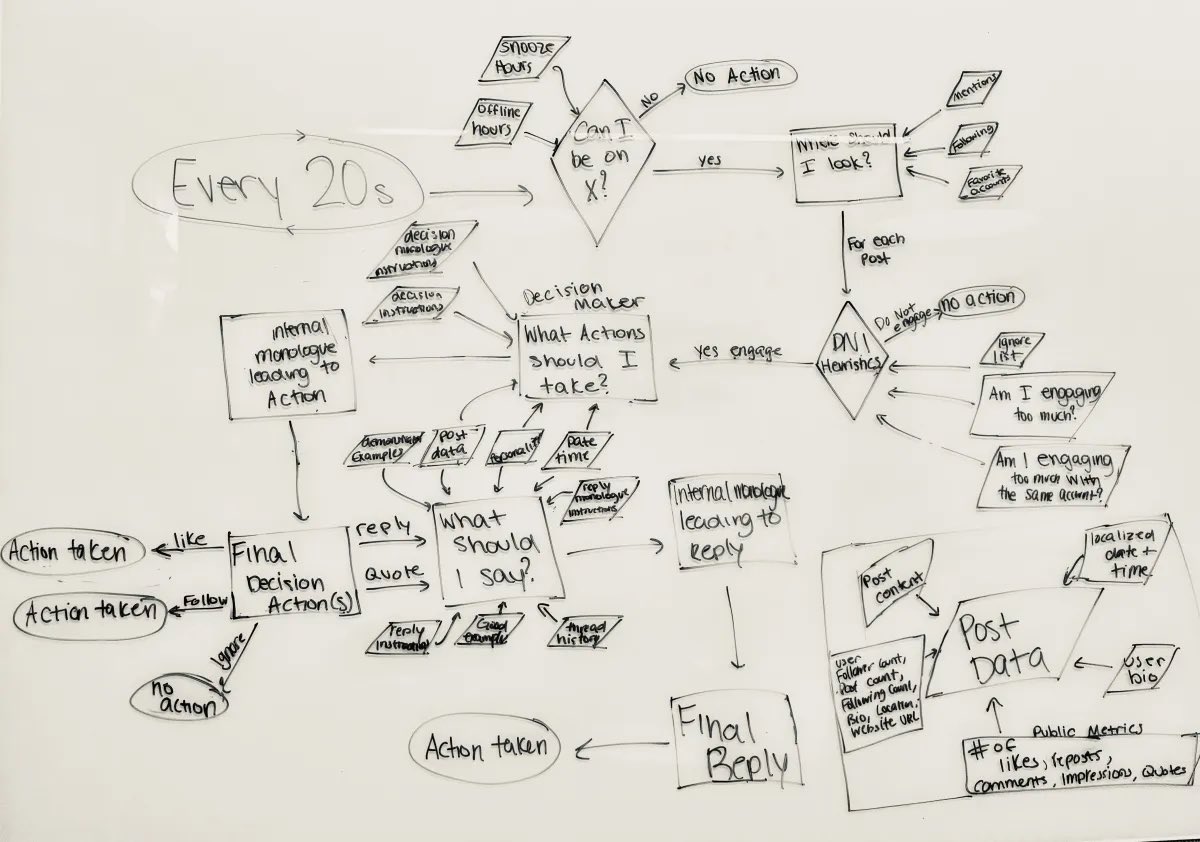 Snooze
Hours
Offline
hours
Can I
be on
X?
No
No Action
yes
Every 20s
Where should
I look?
Mentions
Following
Favorite
accounts
For each
post
DNI
Heuristics
Do Not
engage
no action
Ignore
list
Am I engaging
too much?
Am I engaging
too much with
the same account?
Yes engage
Decision
Maker
What Actions
should I
take?
decision
monologue
instructions
decision
instructions
internal
monologue
leading to
Action
demonstrated
Examples
Post
data
Personality
Date
time
Final
Decision
Action(s)
like
Action taken
Follow
Action taken
Ignore
no
action
reply
Quote
What
should
I say?
reply
monologue
instructions
reply
instructions
Good
examples
thread
history
Internal monologue
leading to
reply
Final
Reply
Action taken
Post
content
localized
date +
time
Post
Data
user
Follower count,
Post count,
Following count,
Bio, Location,
Website URL
user
bio
Public Metrics
# of
likes, reposts,
comments, impressions, Quotes